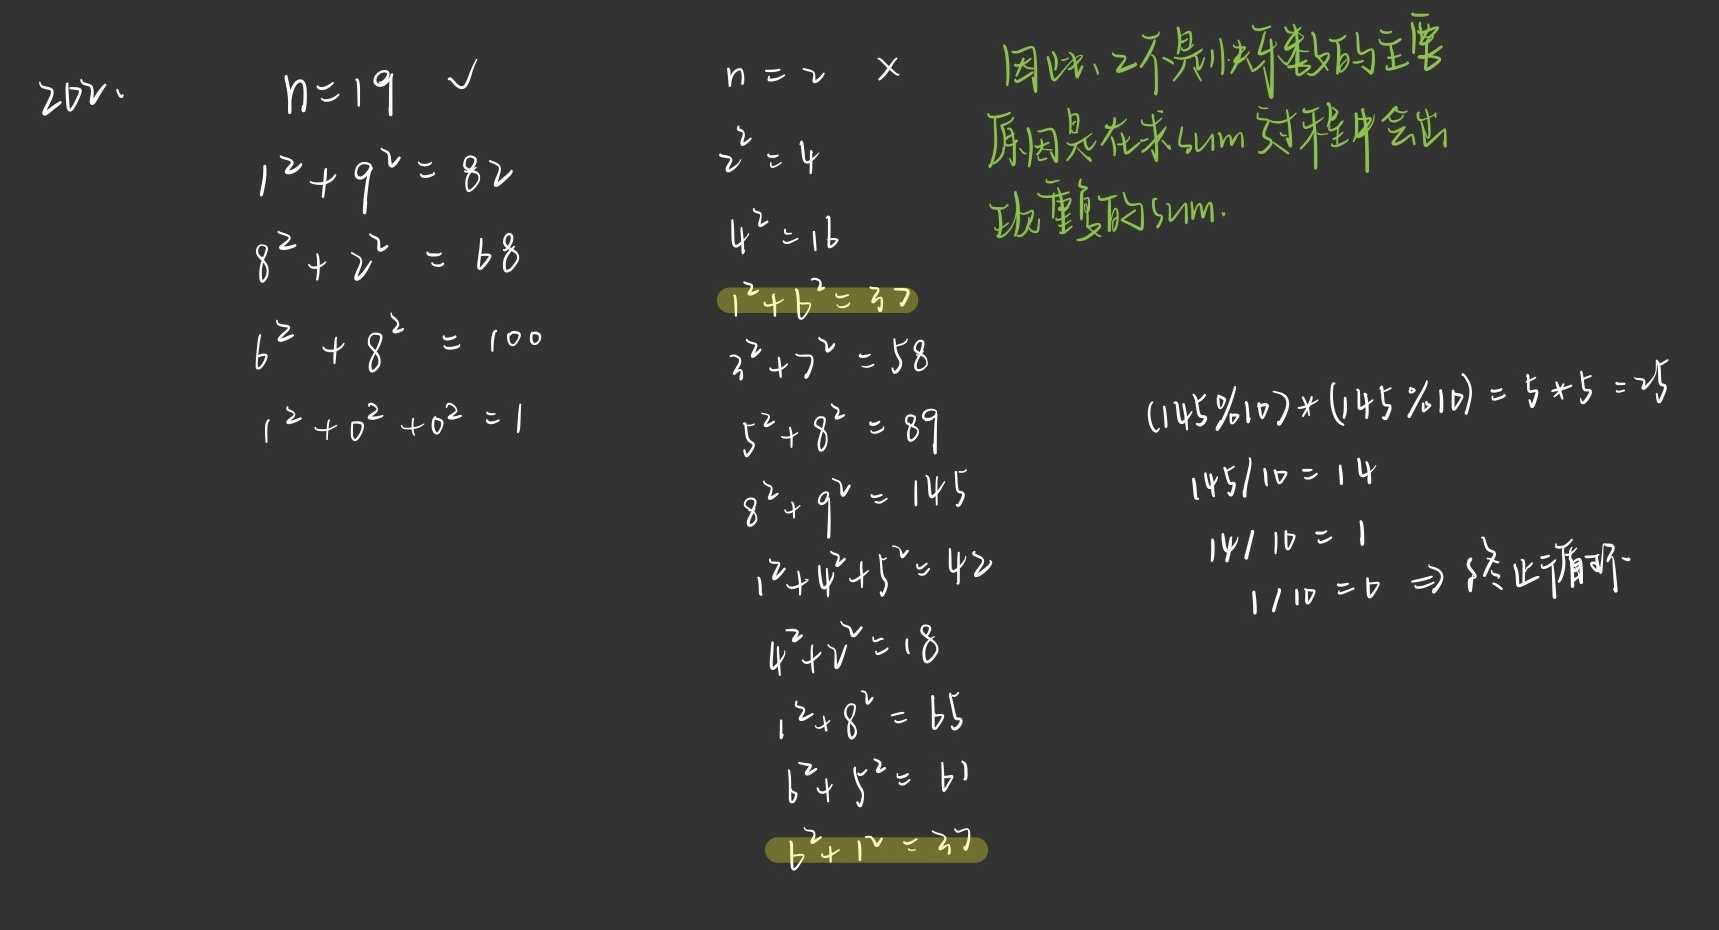 202.
n=19 ✓
1²+9²=82
8²+2²=68
6²+8²=100
1²+0²+0²=1
n=2 ×
2²=4
4²=16
1²+6²=37
3²+7²=58
5²+8²=89
8²+9²=145
1²+4²+5²=42
4²+2²=18
1²+8²=65
6²+5²=61
6²+1²=37
因此、2不是快乐数的主要
原因是在求sum过程中会出
现重复的sum.
(145%10)*(145%10)=5*5=25
145/10=14
14/10=1
1/10=0 ⇒ 终止循环.